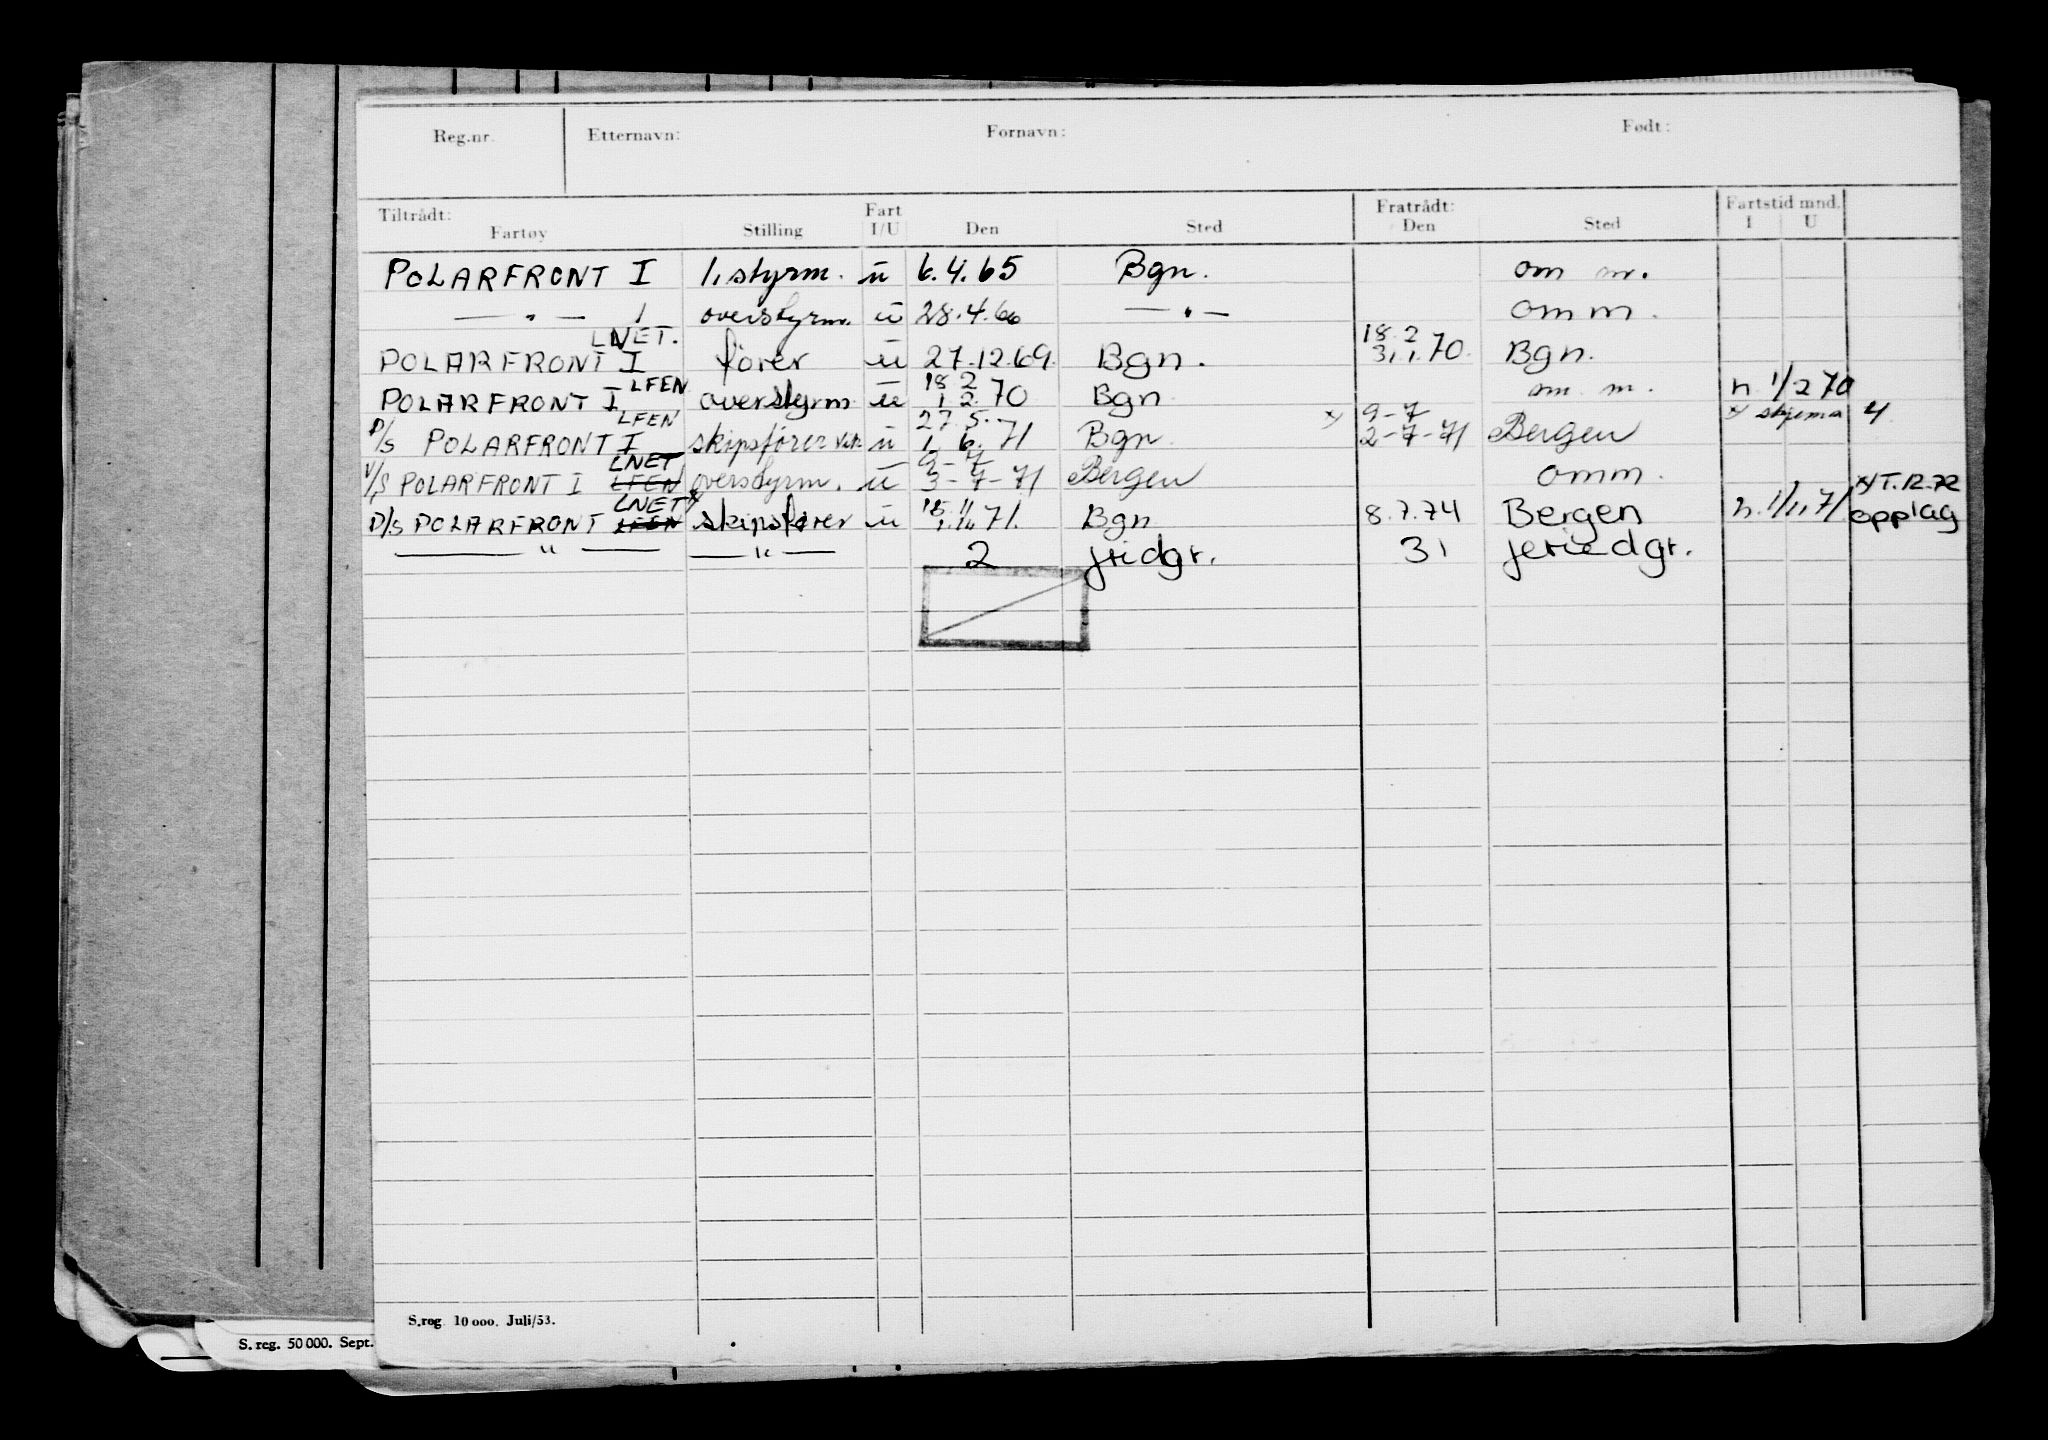 Reg.nr. Etternavn: Fornavn: Født:
Tiltrådt: Fart Fratrådt: Fartstid mnd.
Fartøy Stilling I/U Den Sted Den Sted I U
POLARFRONT I 1. styrm. u 6.4.65 Bgn. om m.
— " — I overstyrm. u 28.4.66 — " — om m.
LNET. 18 2
POLARFRONT I fører u 27.12.69. Bgn. 31.1.70. Bgn.
LFEN 18 2
POLARFRONT I overstyrm u 1 2 70 Bgn om m. n. 1/2 70
LFEN 27.5. x/ 9-7 x/ skjema 4
D/S POLARFRONT I skipsfører vik u 1. 6. 71 Bgn 2-7-71 Bergen
LNET 9-7
V/S POLARFRONT I LFEN overstyrm. u 3-7-71 Bergen om m.
LNET x 15.11 x/ T.12.72
D/S POLARFRONT LFEN skipsfører u 1.11.71. Bgn 8.7.74 Bergen n. 1/11 71 opplag
— " — — " — 2 fridgr. 31 feriedgr.
S.reg. 10 000. Juli/53.
S. reg. 50 000. Sept.